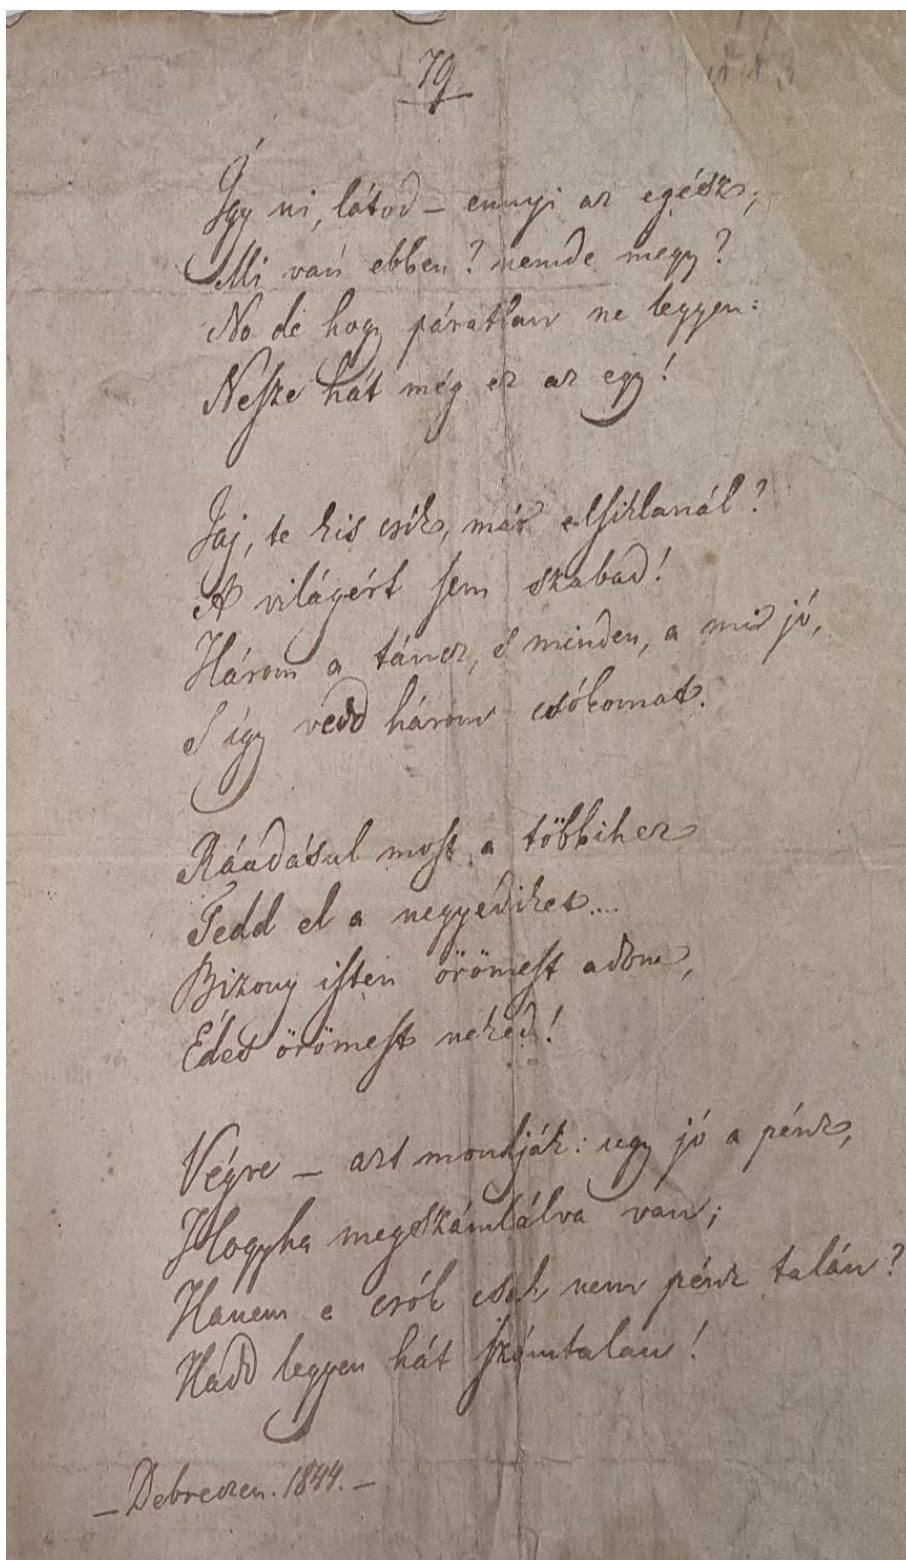 79
Így ni, látod – ennyi az egész;
Mi van ebben? nemde megy?
No de hogy páratlan ne legyen:
Nesze hát még ez az egy!
Jaj, te kis csík, már elsiklanál?
A világért sem szabad!
Három a táncz, s minden, a mi jó,
S így vedd három csókomat.
Ráadásul most a többihez
Tedd el a negyediket....
Bizony isten örömest adom,
Édes örömest neked!
Végre – azt mondják: ugy jó a pénz,
Hogyha megszámlálva van;
Hanem e csók csak nem pénz talán?
Hadd legyen hát számtalan!
– Debreczen. 1844. –